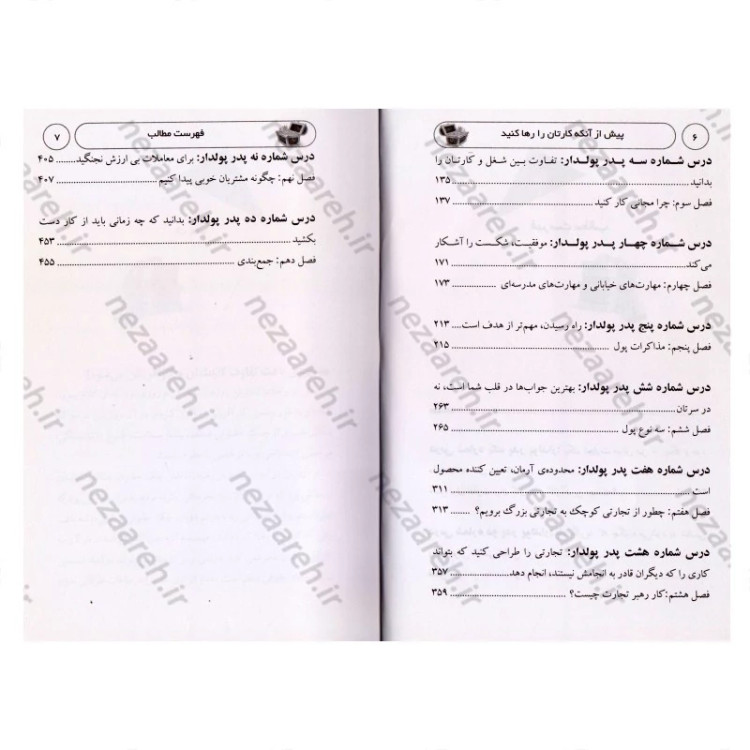 ۶
پیش از آنکه کارتان را رها کنید
درس شماره سه پدر پولدار: تفاوت بین شغل و کارتان را
بدانید ........ ۱۳۵
فصل سوم: چرا مجانی کار کنید ........ ۱۳۷
درس شماره چهار پدر پولدار: موفقیت، شکست را آشکار
می‌کند ........ ۱۷۱
فصل چهارم: مهارت‌های خیابانی و مهارت‌های مدرسه‌ای ........ ۱۷۳
درس شماره پنج پدر پولدار: راه رسیدن، مهم‌تر از هدف است.... ۲۱۳
فصل پنجم: مذاکرات پول ........ ۲۱۵
درس شماره شش پدر پولدار: بهترین جواب‌ها در قلب شما است، نه
در سرتان ........ ۲۶۳
فصل ششم: سه نوع پول ........ ۲۶۵
درس شماره هفت پدر پولدار: محدوده‌ی آرمان، تعیین کننده محصول
است ........ ۳۱۱
فصل هفتم: چطور از تجارتی کوچک به تجارتی بزرگ برویم؟ ........ ۳۱۳
درس شماره هشت پدر پولدار: تجارتی را طراحی کنید که بتواند
کاری را که دیگران قادر به انجامش نیستند، انجام دهد........ ۳۵۷
فصل هشتم:کار رهبر تجارت چیست؟ ........ ۳۵۹
فهرست مطالب
۷
درس شماره نه پدر پولدار: برای معاملات بی ارزش نجنگید........ ۴۰۵
فصل نهم: چگونه مشتریان خوبی پیدا کنیم ........ ۴۰۷
درس شماره ده پدر پولدار: بدانید که چه زمانی باید از کار دست
بکشید ........ ۴۵۳
فصل دهم: جمع‌بندی ........ ۴۵۵
nezaareh.ir
nezaareh.ir
nezaareh.ir
nezaareh.ir
nezaareh.ir
nezaareh.ir